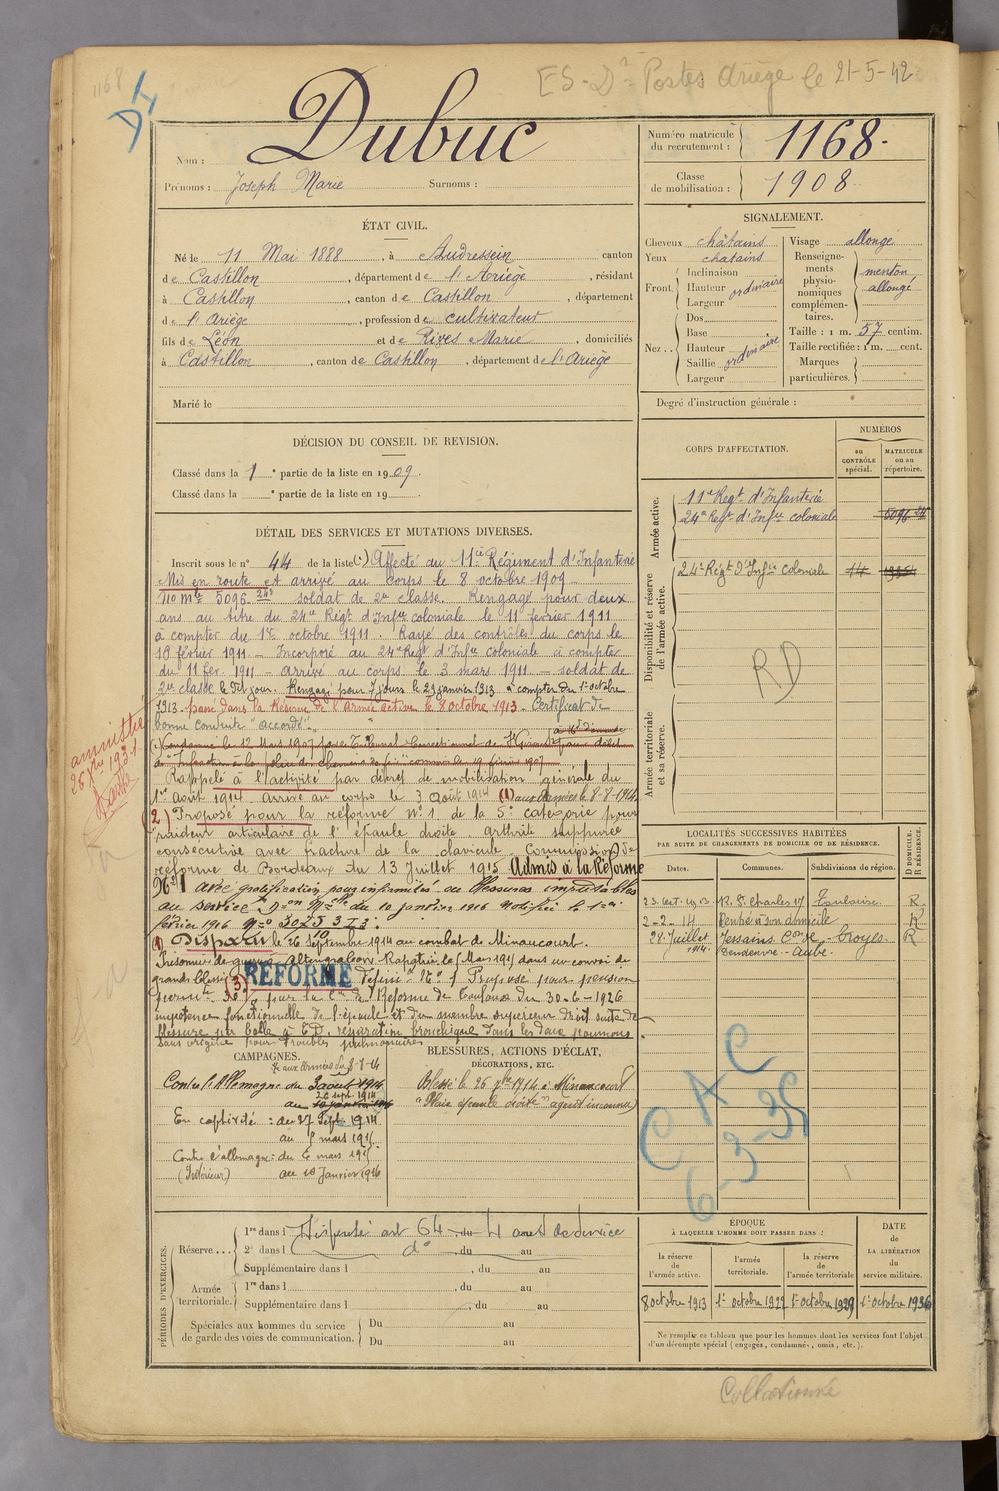 1168
ES - Dr Postes Ariège le 21-5-42
Nom : Dubuc
Prénoms : Joseph Marie Surnoms :
Numéro matricule du recrutement : 1168.
Classe de mobilisation : 1908
ÉTAT CIVIL.
Né le 11 Mai 1888, à Audressein canton
de Castillon, département de l'Ariège, résidant
à Castillon, canton de Castillon, département
de l'Ariège, profession de cultivateur
fils de Léon et de Rives Marie, domiciliés
à Castillon, canton de Castillon, département de l'Ariège
Marié le
SIGNALEMENT.
Cheveux châtains
Yeux chatains
Front. Inclinaison Hauteur Largeur ordinaire
Nez.. Dos Base Hauteur Saillie Largeur ordinaire
Visage allongé
Renseignements physionomiques complémentaires. menton allongé
Taille : 1 m. 57 centim.
Taille rectifiée : 1 m. cent.
Marques particulières.
Degré d'instruction générale :
DÉCISION DU CONSEIL DE REVISION.
Classé dans la 1e partie de la liste en 1909.
Classé dans la e partie de la liste en 19
CORPS D'AFFECTATION.
NUMÉROS
au CONTRÔLE spécial.
MATRICULE ou au répertoire.
Armée active.
11e Regt d'Infanterie
24e Regt d'Infrie coloniale 5096
Disponibilité et réserve de l'armée active.
24e Régt d'Infrie Coloniale
RD
Armée territoriale et sa réserve.
DÉTAIL DES SERVICES ET MUTATIONS DIVERSES.
Inscrit sous le n° 44 de la liste (1) Affecté au 11e Régiment d'Infanterie
Mis en route et arrivé au corps le 8 octobre 1909
no mle 5096 soldat de 2e classe. Rengagé pour deux
ans au titre du 24e Régt d'Infrie coloniale le 11 février 1911
à compter du 1er octobre 1911. Rayé des contrôles du corps le
10 février 1911 - Incorporé au 24e Regt d'Infrie coloniale à compter
du 11 fer. 1911 - arrivé au corps le 3 mars 1911 - soldat de
2e classe le dit jour. Rengagé pour 7 jours le 29 janvier 1913 à compter du 1er octobre
1913. passé dans la Réserve de l'Armée active le 8 octobre 1913. Certificat de
bonne conduite "accordé".
(1) Condamné le 12 Mars 1907 par le Tribunal Correctionnel de St Girons à 16f d'amende pour délit
amnistié
Rappelé à l'activité par décret de mobilisation générale du
1er août 1914. arrivé au corps le 3 Août 1914 (1) aux armées le 8-8-1914
(2) Proposé pour la réforme N° 1 de la 5e catégorie pour
raideur articulaire de l'épaule droite. arthrite suppurée
consécutive avec fracture de la clavicule. Commission de
réforme de Bordeaux du 13 Juillet 1915 Admis à la Réforme
N° 1 avec gratification pour infirmités ou blessures imputables
au service Don Melle du 10 janvier 1916 Notifiée le 1er
février 1916
(1) Disparu le 26 Septembre 1914 au combat de Minaucourt.
Prisonnier de guerre Rapatrié le 5 Mars 1915 dans un convoi de
grands blessés (3) RÉFORMÉ Définif N° 1 Proposé pour pension
permte 30% par la Con de Réforme de Toulouse du 30-6-1926
impotence fonctionnelle de l'épaule et du membre supérieur droit suite de
blessure par balle à E.D. respiration bronchique dans les deux poumons
sans origine pour troubles pulmonaires
LOCALITÉS SUCCESSIVES HABITÉES
PAR SUITE DE CHANGEMENTS DE DOMICILE OU DE RÉSIDENCE.
Dates. Communes. Subdivisions de région. D DOMICILE. R RÉSIDENCE.
23 Oct. 1913 R. St Charles 17 Toulouse R.
2-2-14 Rentré à son domicile R
28 Juillet 1914 Jessains Con de Vendeuvre - Aube. Troyes R
CAMPAGNES.
aux Armées du 8-8-14
Contre l'Allemagne du 3 août 1914
au 26 sept. 1914
En captivité : du 27 Sept. 1914
au 5 mars 1915.
Contre l'allemagne : du 6 mars 1915
(Intérieur) au 10 Janvier 1916
BLESSURES, ACTIONS D'ÉCLAT,
DÉCORATIONS, ETC.
Blessé le 26 7bre 1914 à Minaucourt
"Plaie épaule droite" agent inconnu)
CAC
6-3-35
PÉRIODES D'EXERCICES.
Réserve... 1re dans l Dispensé art 64 du 4 ans de service
2e dans l do, du au
Supplémentaire dans l, du au
Armée territoriale. 1re dans l, du au
Supplémentaire dans l, du au
Spéciales aux hommes du service de garde des voies de communication. Du au
Du au
ÉPOQUE
À LAQUELLE L'HOMME DOIT PASSER DANS :
la réserve de l'armée active. l'armée territoriale. la réserve de l'armée territoriale
DATE DE LA LIBÉRATION du service militaire.
8 octobre 1913 1er octobre 1922 1er octobre 1929 1er octobre 1936
Ne remplir ce tableau que pour les hommes dont les services font l'objet
d'un décompte spécial (engagés, condamnés, omis, etc.).
Collationné